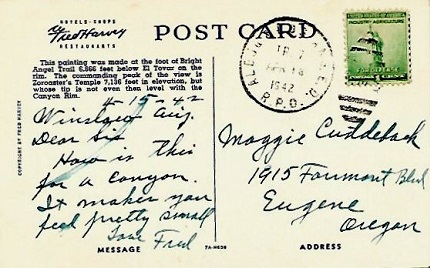 HOTELS-SHOPS
Fred Harvey
RESTAURANTS
POST CARD
This painting was made at the foot of Bright
Angel Trail 6,866 feet below El Tovar on the
rim. The commanding peak of the view is
Zoroaster's Temple 7,136 feet in elevation, but
whose tip is not even then level with the
Canyon Rim.
COPYRIGHT BY FRED HARVEY
4-15-42
Winslow
Dear Sis
How is this
for a canyon.
It makes you
feel pretty small
Love Fred
MESSAGE
ALBU
TR 7
APR 15
1942
R.P.O.
INDUSTRY AGRICULTURE
Maggie Cuddeback
1915 Fairmont Blvd
Eugene
Oregon
ADDRESS